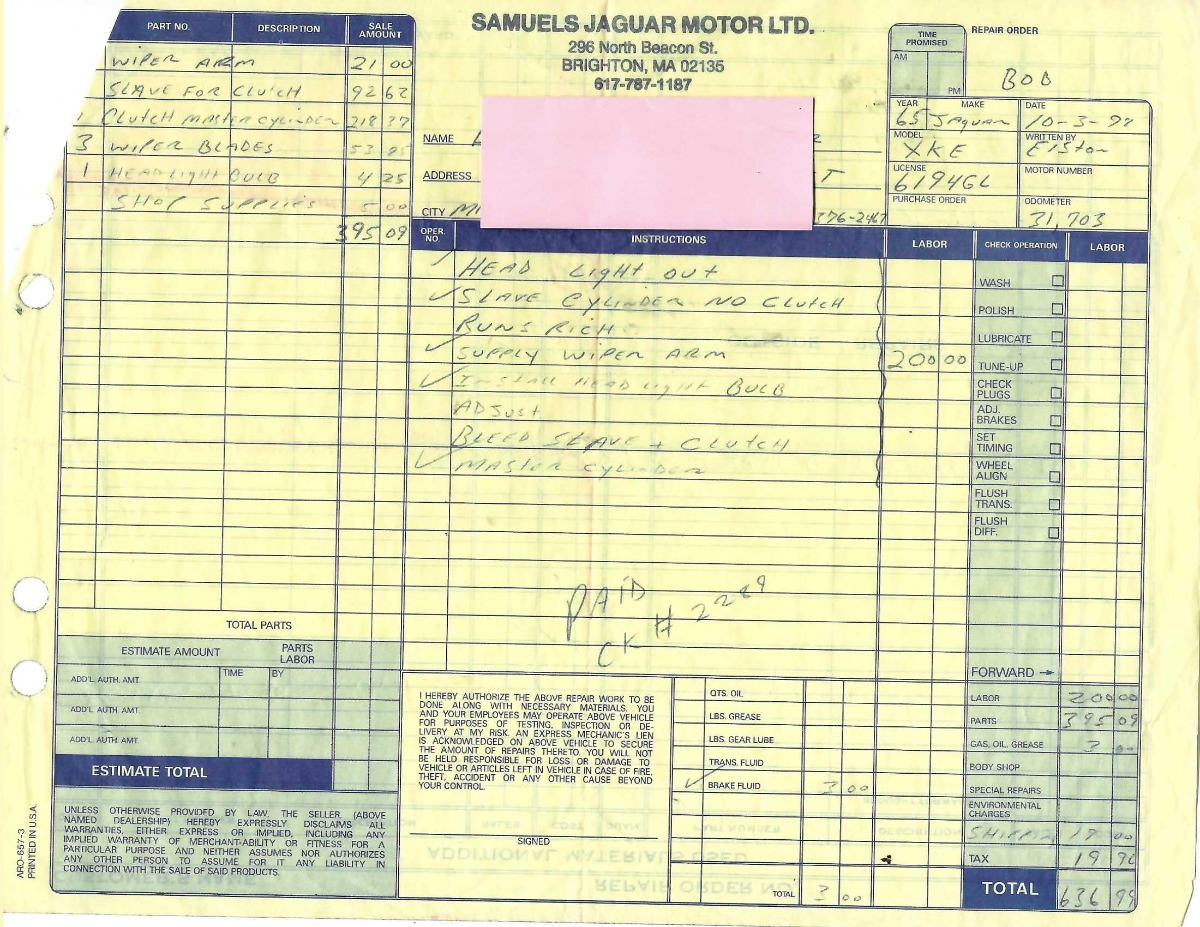 SAMUELS JAGUAR MOTOR LTD.
296 North Beacon St.
BRIGHTON, MA 02135
617-787-1187
TIME PROMISED
AM
PM
REPAIR ORDER
BOB
YEAR MAKE DATE
65 Jaguar 10-3-98
MODEL WRITTEN BY
XKE Elston
LICENSE MOTOR NUMBER
6194GL
PURCHASE ORDER ODOMETER
31,703
NAME
ADDRESS T
CITY MI 376-2467
PART NO. DESCRIPTION SALE AMOUNT
WIPER ARM 21 00
SLAVE FOR CLUTCH 92 62
1 CLUTCH MASTER CYLINDER 218 37
3 WIPER BLADES 53 85
1 HEADLIGHT BULB 4 25
SHOP SUPPLIES 5 00
395 09
OPER. NO. INSTRUCTIONS LABOR CHECK OPERATION LABOR
HEAD LIGHT OUT
SLAVE CYLINDER NO CLUTCH
RUNS RICH
SUPPLY WIPER ARM 200 00
INSTALL HEAD LIGHT BULB
ADJUST
BLEED SLAVE + CLUTCH
MASTER CYLINDER
WASH
POLISH
LUBRICATE
TUNE-UP
CHECK PLUGS
ADJ. BRAKES
SET TIMING
WHEEL ALIGN
FLUSH TRANS.
FLUSH DIFF.
PAID
CK # 2289
TOTAL PARTS
ESTIMATE AMOUNT PARTS LABOR
ADD'L. AUTH. AMT. TIME BY
ADD'L. AUTH. AMT.
ADD'L. AUTH. AMT.
ESTIMATE TOTAL
UNLESS OTHERWISE PROVIDED BY LAW, THE SELLER, (ABOVE
NAMED DEALERSHIP) HEREBY EXPRESSLY DISCLAIMS ALL
WARRANTIES, EITHER EXPRESS OR IMPLIED, INCLUDING ANY
IMPLIED WARRANTY OF MERCHANT-ABILITY OR FITNESS FOR A
PARTICULAR PURPOSE AND NEITHER ASSUMES NOR AUTHORIZES
ANY OTHER PERSON TO ASSUME FOR IT ANY LIABILITY IN
CONNECTION WITH THE SALE OF SAID PRODUCTS.
ARO-657-3
PRINTED IN U.S.A.
I HEREBY AUTHORIZE THE ABOVE REPAIR WORK TO BE
DONE ALONG WITH NECESSARY MATERIALS. YOU
AND YOUR EMPLOYEES MAY OPERATE ABOVE VEHICLE
FOR PURPOSES OF TESTING, INSPECTION OR DE-
LIVERY AT MY RISK. AN EXPRESS MECHANIC'S LIEN
IS ACKNOWLEDGED ON ABOVE VEHICLE TO SECURE
THE AMOUNT OF REPAIRS THERETO. YOU WILL NOT
BE HELD RESPONSIBLE FOR LOSS OR DAMAGE TO
VEHICLE OR ARTICLES LEFT IN VEHICLE IN CASE OF FIRE,
THEFT, ACCIDENT OR ANY OTHER CAUSE BEYOND
YOUR CONTROL.
SIGNED
QTS. OIL
LBS. GREASE
LBS. GEAR LUBE
TRANS. FLUID
BRAKE FLUID 3 00
TOTAL 3 00
FORWARD →
LABOR 200 00
PARTS 395 09
GAS, OIL, GREASE 3 00
BODY SHOP
SPECIAL REPAIRS
ENVIRONMENTAL CHARGES
SHIPPING 19 00
TAX 19 90
TOTAL 636 99